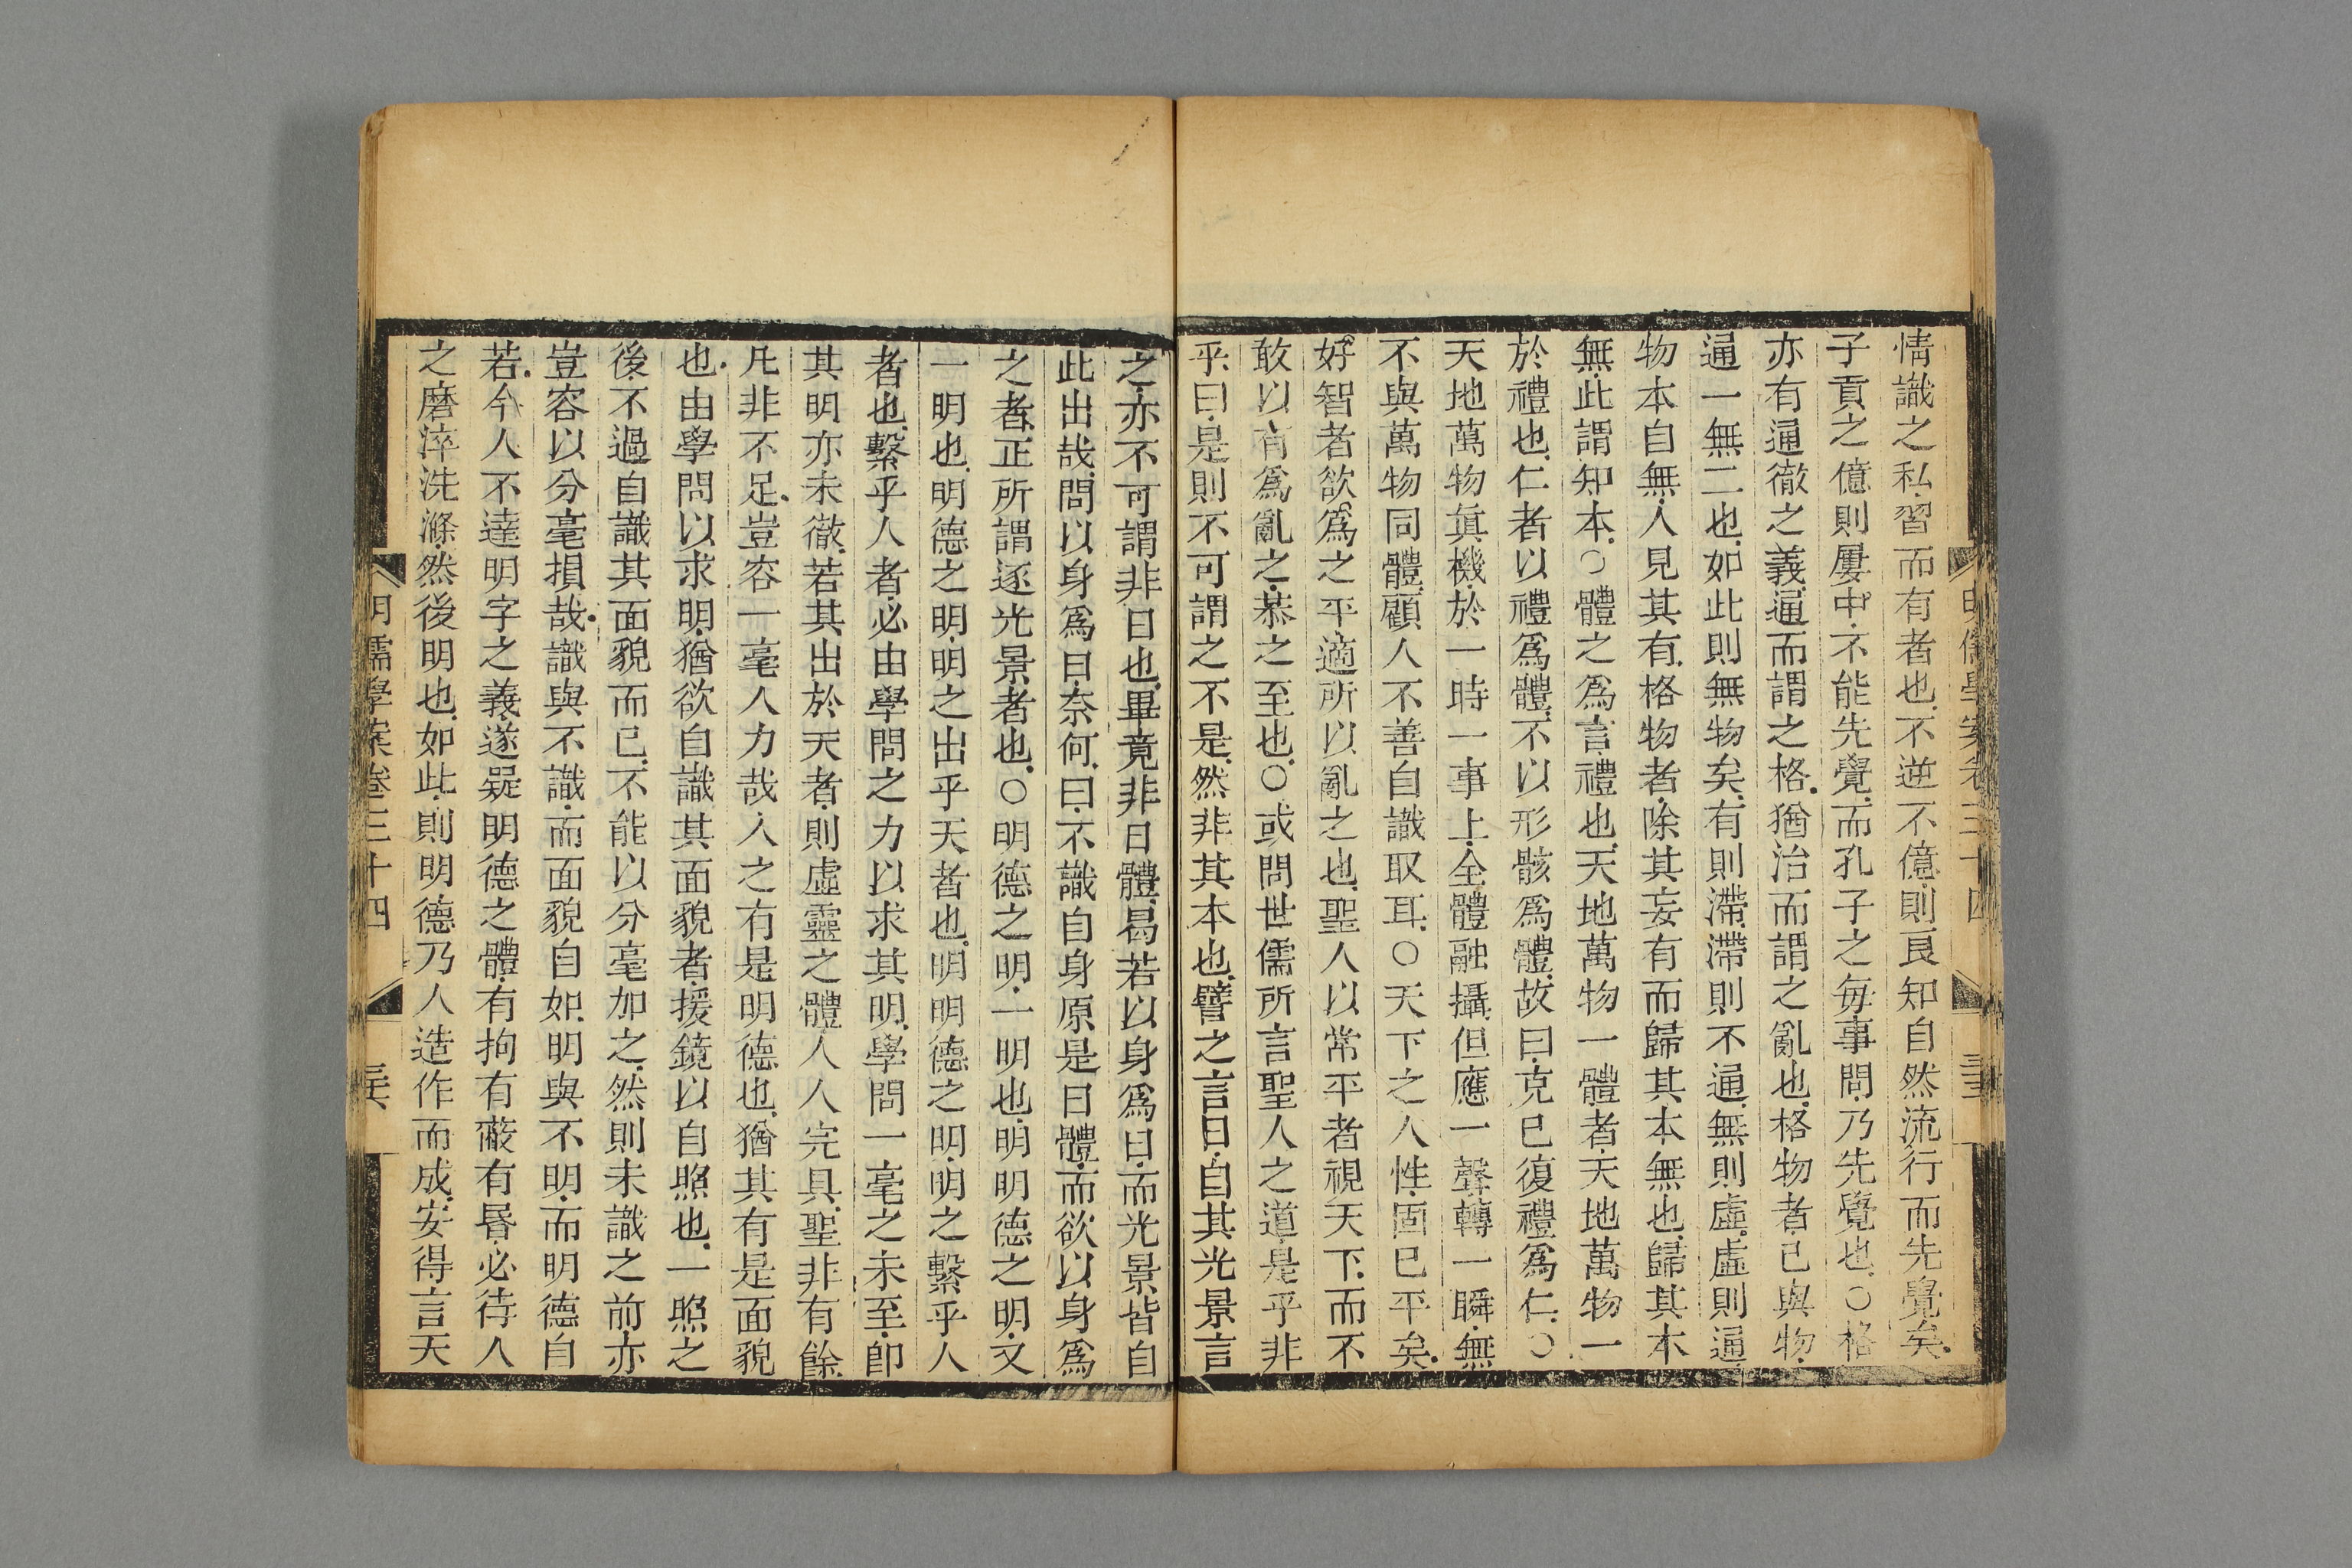 情識之私習而有者也不逆不億則良知自然流行而先覺矣
子貢之億則屢中不能先覺而孔子之每事問乃先覺也○格
亦有通徹之義通而謂之格猶治而謂之亂也格物者己與物
通一無二也如此則無物矣有則滯滯則不通無則虛虛則通
物本自無人見其有格物者除其妄有而歸其本無也歸其本
無此謂知本○體之爲言禮也天地萬物一體者天地萬物一
於禮也仁者以禮爲體不以形骸爲體故曰克已復禮爲仁○
天地萬物眞機於一時一事上全體融攝但應一聲轉一瞬無
不與萬物同體顧人不善自識取耳○天下之人性固已平矣
好智者欲爲之平適所以亂之也聖人以常平者視天下而不
敢以有爲亂之恭之至也○或問世儒所言聖人之道是乎非
乎曰是則不可謂之不是然非其本也譬之言日自其光景言
之亦不可謂非日也畢竟非日體曷若以身爲日而光景皆自
此出哉問以身爲日奈何曰不識自身原是日體而欲以身爲
之者正所謂逐光景者也○明德之明一明也明明德之明又
一明也明德之明明之出乎天者也明明德之明明之繫乎人
者也繫乎人者必由學問之力以求其明學問一毫之未至卽
其明亦未徹若其出於天者則虛靈之體人人完具聖非有餘
凡非不足豈容一毫人力哉人之有是明德也猶其有是面貌
也由學問以求明猶欲自識其面貌者援鏡以自照也一照之
後不過自識其面貌而已不能以分毫加之然則未識之前亦
豈容以分毫損哉識與不識而面貌自如明與不明而明德自
若今人不達明字之義遂疑明德之體有拘有蔽有昬必待人
之磨淬洗滌然後明也如此則明德乃人造作而成安得言天
明儒學案卷三十四